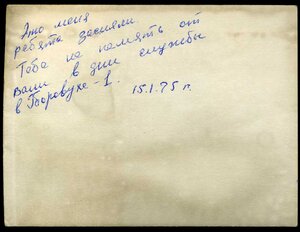 Это меня
ребята засняли.
Тебе на память от
Вани в дни службы
в Боровухе-1.
15.1.75 г.